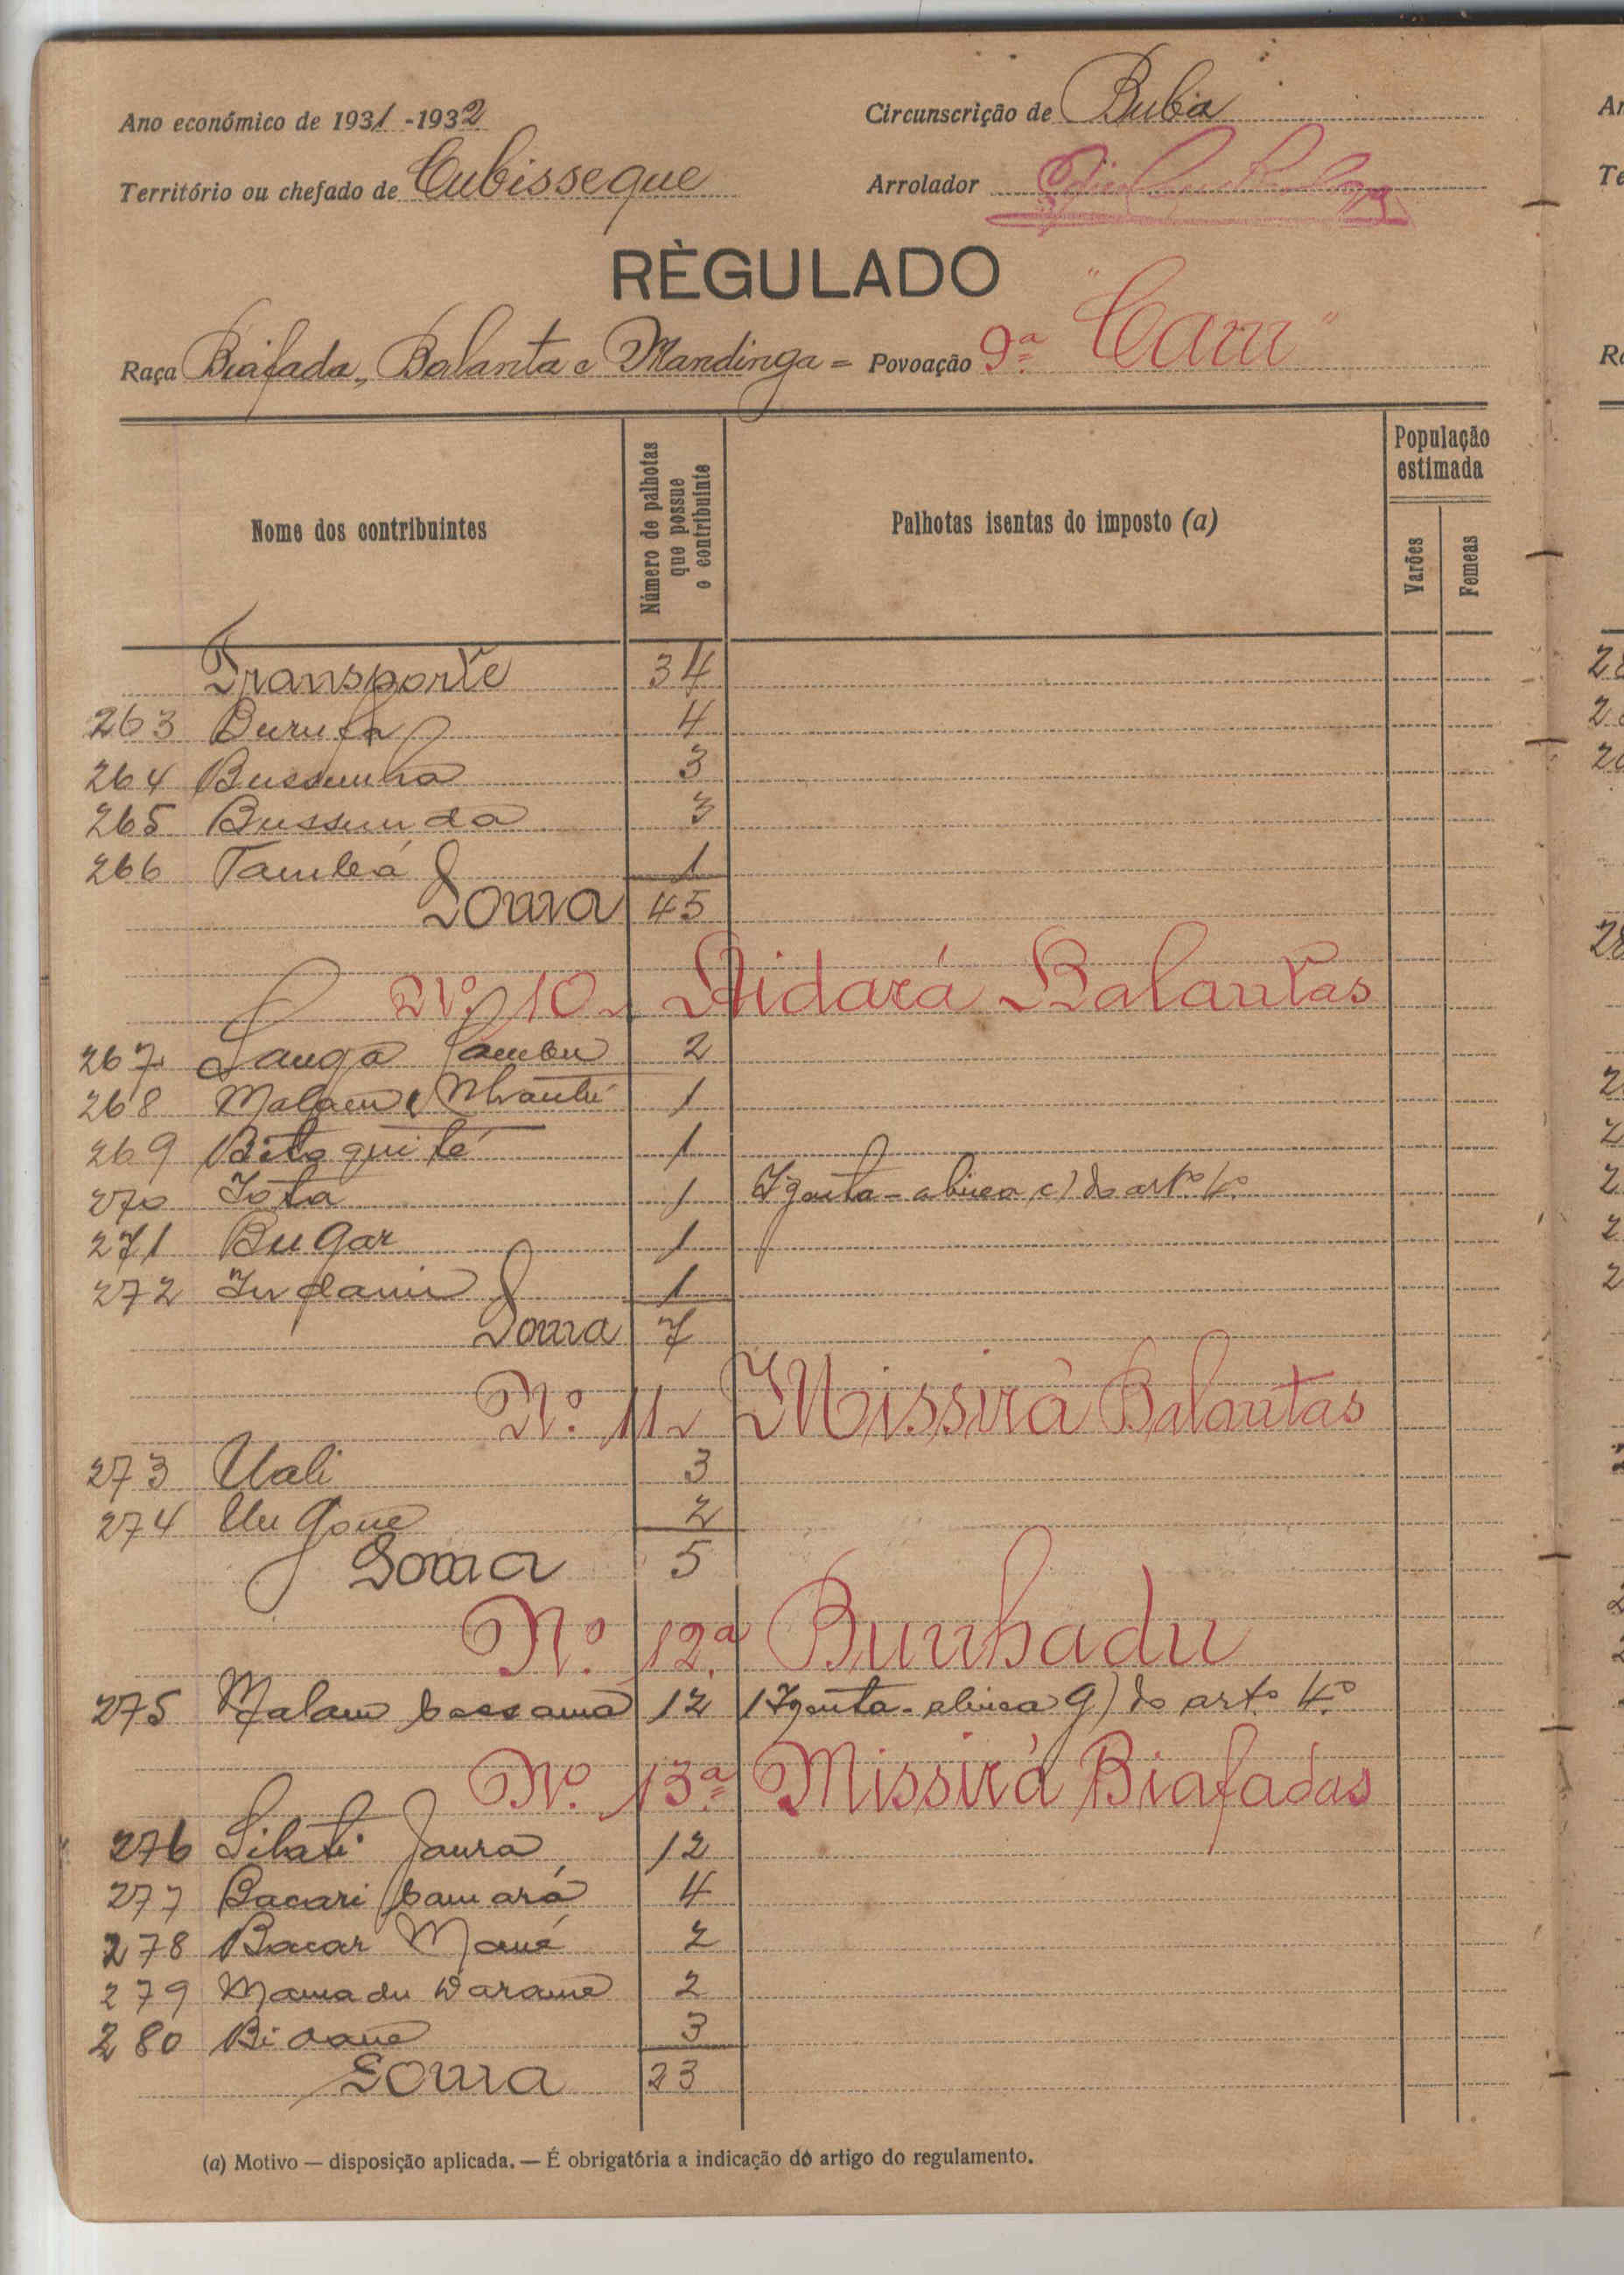 Ano económico de 1931-1932 Circunscrição de Buba
Território ou chefado de Cubisseque Arrolador
RÈGULADO
Raça Biafada, Balanta e Mandinga = Povoação 9.ª "Cam"
Nome dos contribuintes
Número de palhotas que possue o contribuinte
Palhotas isentas do imposto (a)
População estimada
Varões
Femeas
Transporte 34
263 4
264 3
265 Bussunda 3
266 Tambeá 1
Soma 45
Nº 10 Aidará Balantas
267 2
268 Malam 1
269 Bitoquité 1
270 Iota 1 Izenta - alinea c) do artº 4º
271 Bugar 1
272 1
Soma 7
Nº. 11 Missirá Balantas
273 Uali 3
274 2
Soma 5
Nº. 12.ª Bunhadu
275 Malam Cassamá 12 1 Izenta - alinea g) do artº 4.º
Nº. 13.ª Missirá Biafadas
276 12
277 Bacari Camará 4
278 Bacar Mané 2
279 Mamadu Darame 2
280 3
Soma 23
(a) Motivo — disposição aplicada. — É obrigatória a indicação do artigo do regulamento.